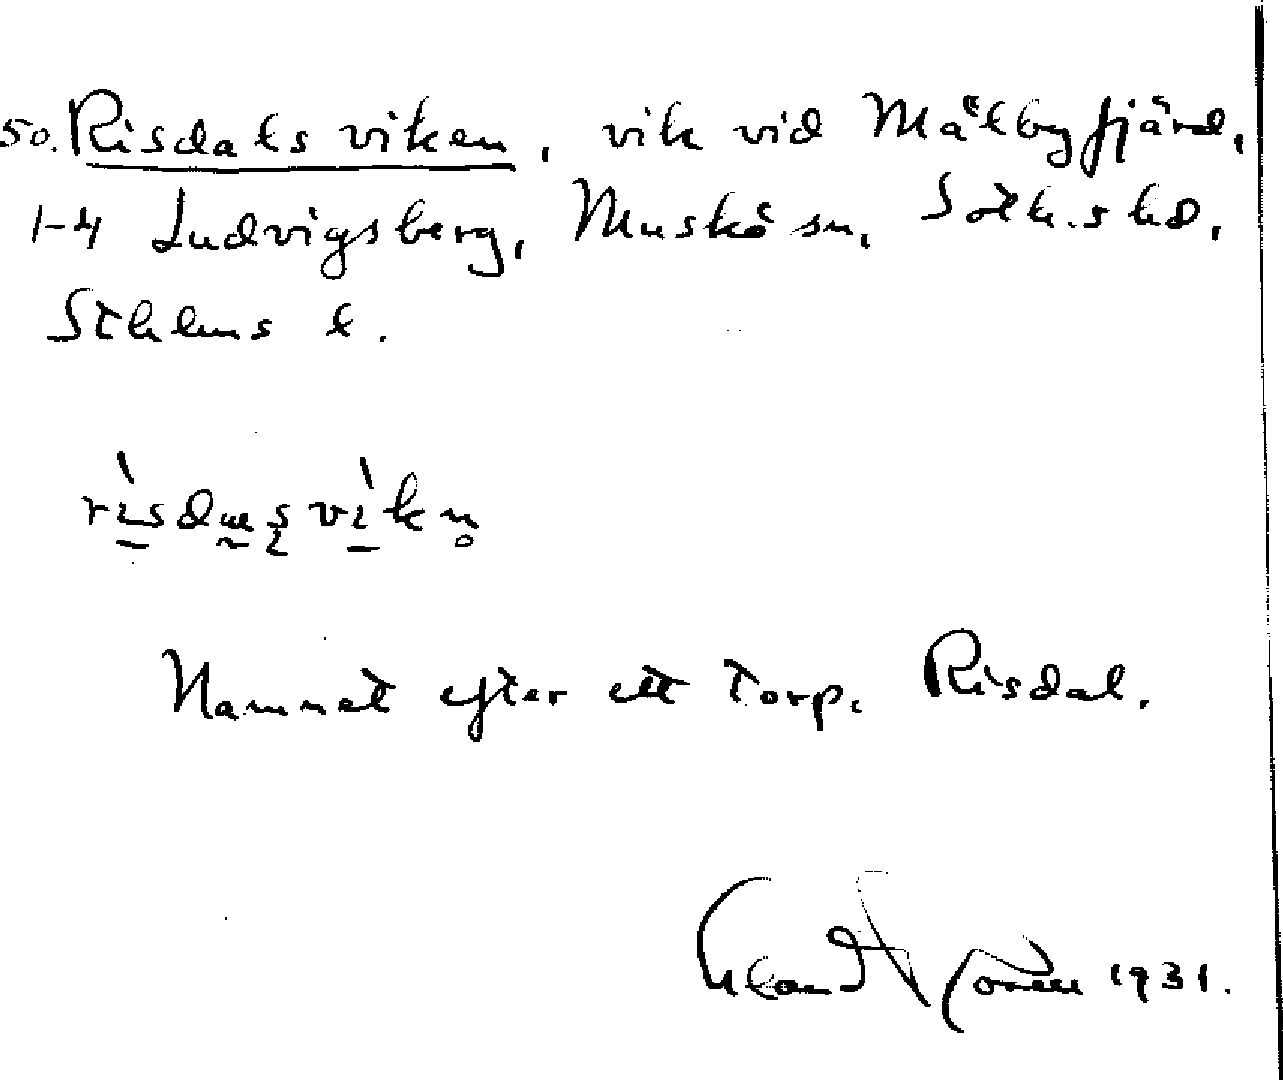 50. Risdalsviken, vik vid Mälbyfjärd,
1-4 Ludvigsberg, Muskö sn, Soth.s hd,
Sthlms l.
Namnet efter ett torp. Risdal.
1931.